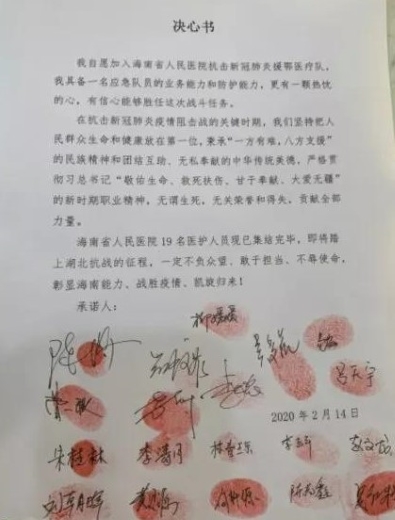 决心书
我自愿加入海南省人民医院抗击新冠肺炎援鄂医疗队,
我具备一名应急队员的业务能力和防护能力,更有一颗热忱
的心,有信心能够胜任这次战斗任务。
在抗击新冠肺炎疫情阻击战的关键时期,我们坚持把人
民群众生命和健康放在第一位,秉承“一方有难,八方支援”
的民族精神和团结互助、无私奉献的中华传统美德,严格贯
彻习总书记“敬佑生命、救死扶伤、甘于奉献、大爱无疆”
的新时期职业精神,无谓生死,无关荣誉和得失,贡献全部
力量。
海南省人民医院 19 名医护人员现已集结完毕,即将踏
上湖北抗战的征程,一定不负众望、敢于担当、不辱使命,
彰显海南能力、战胜疫情、凯旋归来!
承诺人:
吕天宇
2020 年 2 月 14 日
朱桂林